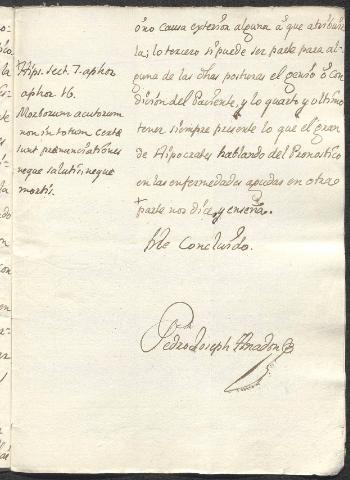 Hips. sect. 7. aphor
aphor 16.
Morborum acutorum
non in totum certe
sunt prænunciationes
neque salutis, neque
mortis.
ô no causa exterior alguna â que atribuir
la; lo tercero si puede ser parte para al-
guna de las dhas posturas el genio ô con
dicion del Paciente, y lo quarto y ultimo
tener siempre presente lo que el gran
de Hipocrates hablando del Pronostico
en las enfermedades agudas en otra
+
parte nos dice, y enseña.
He Concluido.
Pedro Joseph Amadon